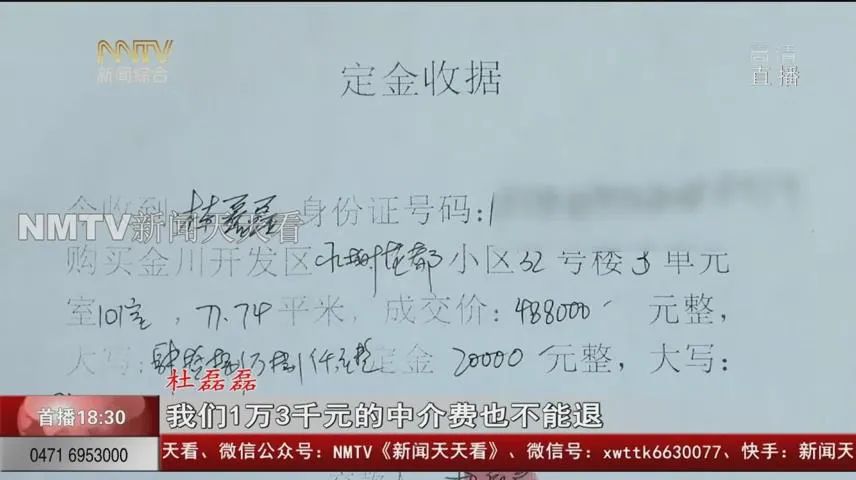 NMTV
新闻综合
高清
直播
定金收据
今收到 杜磊磊 身份证号码:1
NMTV新闻天天看
购买金川开发区 花都 小区32号楼3单元
室101室，77.74平米，成交价：488000 元整，
大写：肆拾捌万捌仟元整 定金 20000 元整，大写：
杜磊磊
首播18:30
我们1万3千元的中介费也不能退
0471 6953000
天看、微信公众号：NMTV《新闻天天看》、微信号：xwttk6630077、快手：新闻天